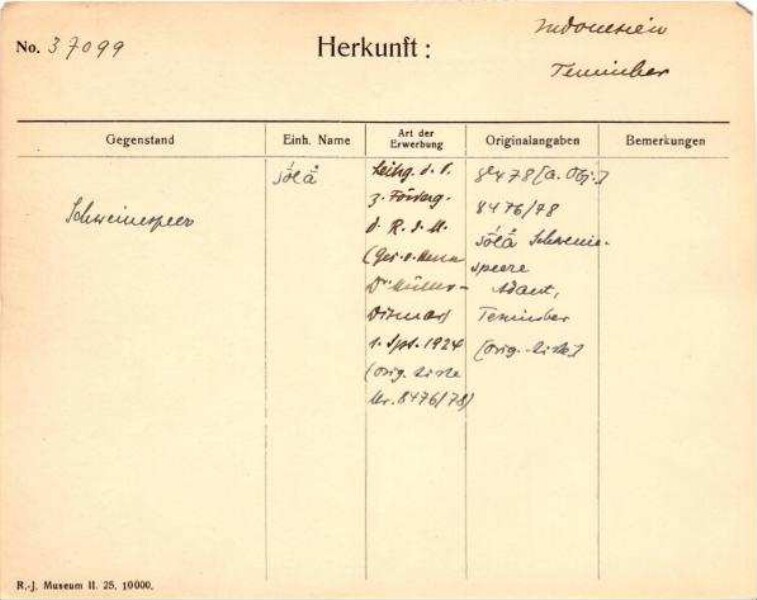 No. 37099
Herkunft:
Indonesien
Tenimber
Gegenstand
Einh. Name
Art der Erwerbung
Originalangaben
Bemerkungen
Schweinespeer
Leihg. d. V.
z. Förderg.
d. R. J. M.
(Ges. v. Herrn
Dr. Müller-
Wismar)
1. Spt. 1924
(Orig. Liste
Nr. 8476/78)
8478 [a. Obj.]
8476/78
Schweine-
speere
Adaut,
Tenimber
[Orig. Liste]
R.-J. Museum II. 25. 10000.